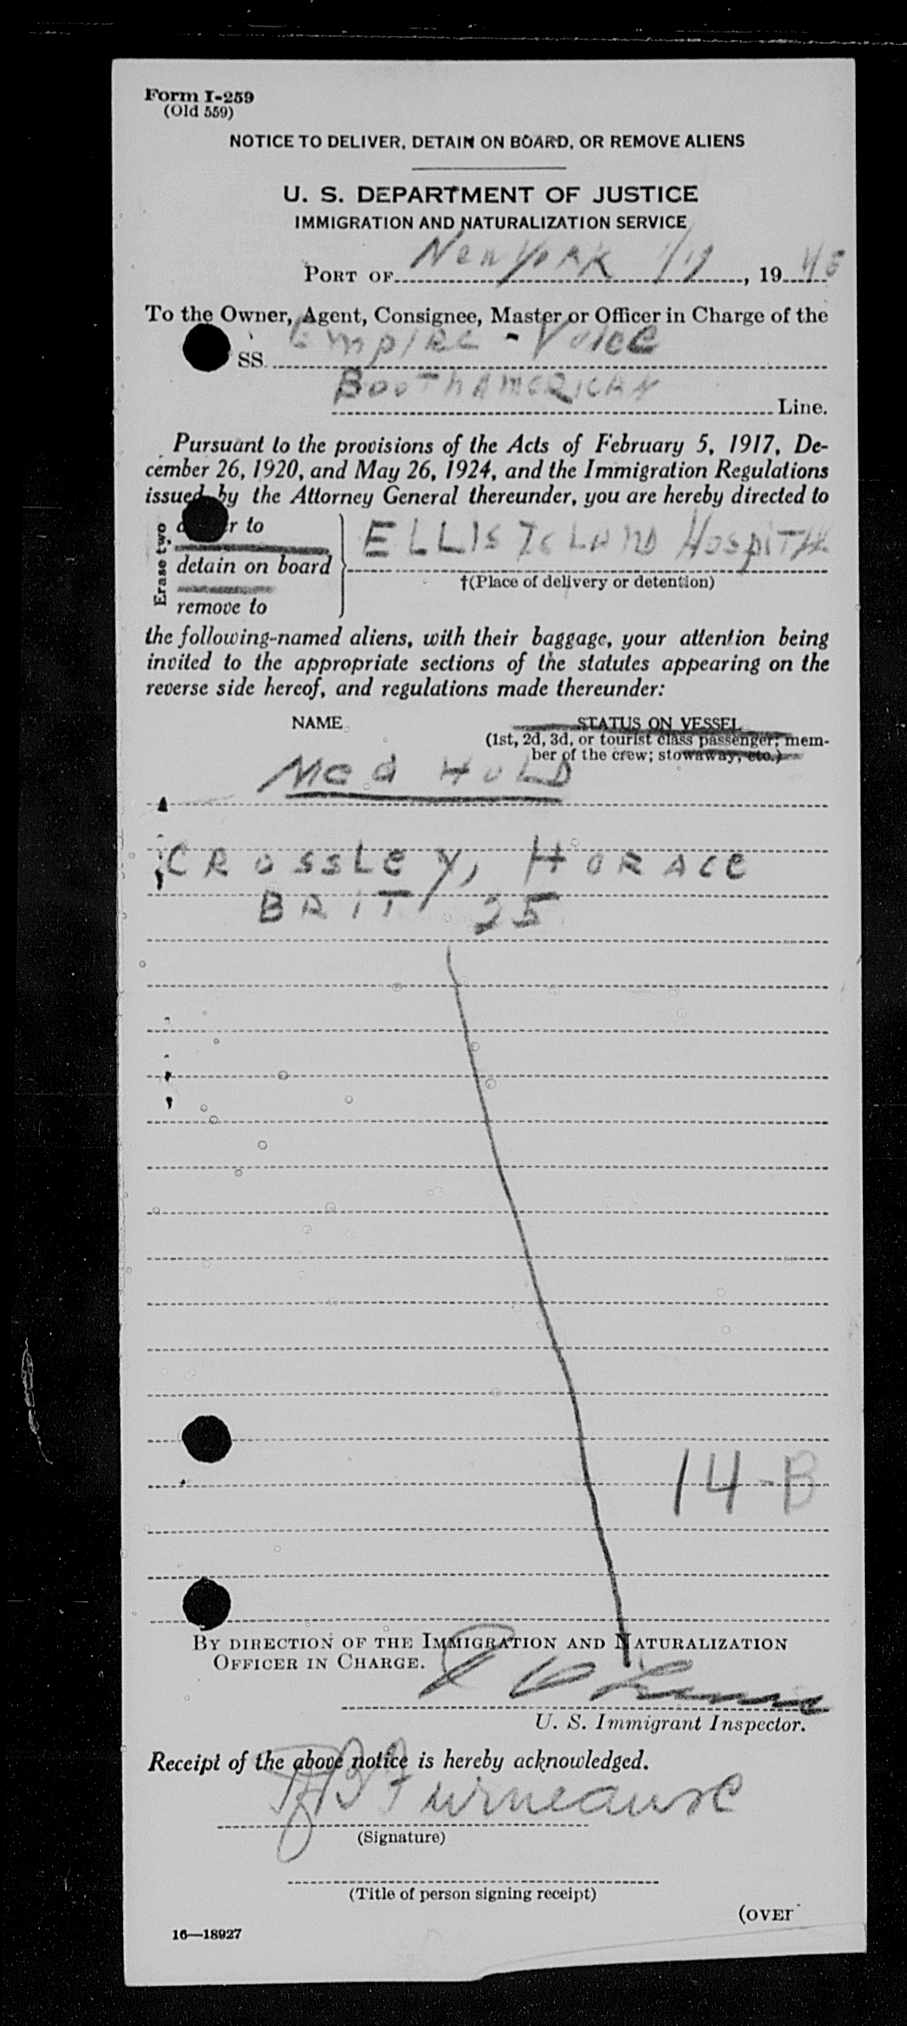 Form I-259
(Old 559)
NOTICE TO DELIVER, DETAIN ON BOARD, OR REMOVE ALIENS
U. S. DEPARTMENT OF JUSTICE
IMMIGRATION AND NATURALIZATION SERVICE
PORT OF New York 1/17, 1948
To the Owner, Agent, Consignee, Master or Officer in Charge of the
SS. Empire - Voice
Booth American Line.
Pursuant to the provisions of the Acts of February 5, 1917, De-
cember 26, 1920, and May 26, 1924, and the Immigration Regulations
issued by the Attorney General thereunder, you are hereby directed to
Erase two
to
detain on board
remove to
ELLIS ISLAND HOSPITAL
†(Place of delivery or detention)
the following-named aliens, with their baggage, your attention being
invited to the appropriate sections of the statutes appearing on the
reverse side hereof, and regulations made thereunder:
NAME STATUS ON VESSEL
(1st, 2d, 3d, or tourist class passenger; mem-
ber of the crew; stowaway, etc.)
Med HOLD
CROSSLEY, HORACE
BRIT 25
14-B
BY DIRECTION OF THE IMMIGRATION AND NATURALIZATION
OFFICER IN CHARGE.
U. S. Immigrant Inspector.
Receipt of the above notice is hereby acknowledged.
Furneause
(Signature)
(Title of person signing receipt)
(OVER
16—18927